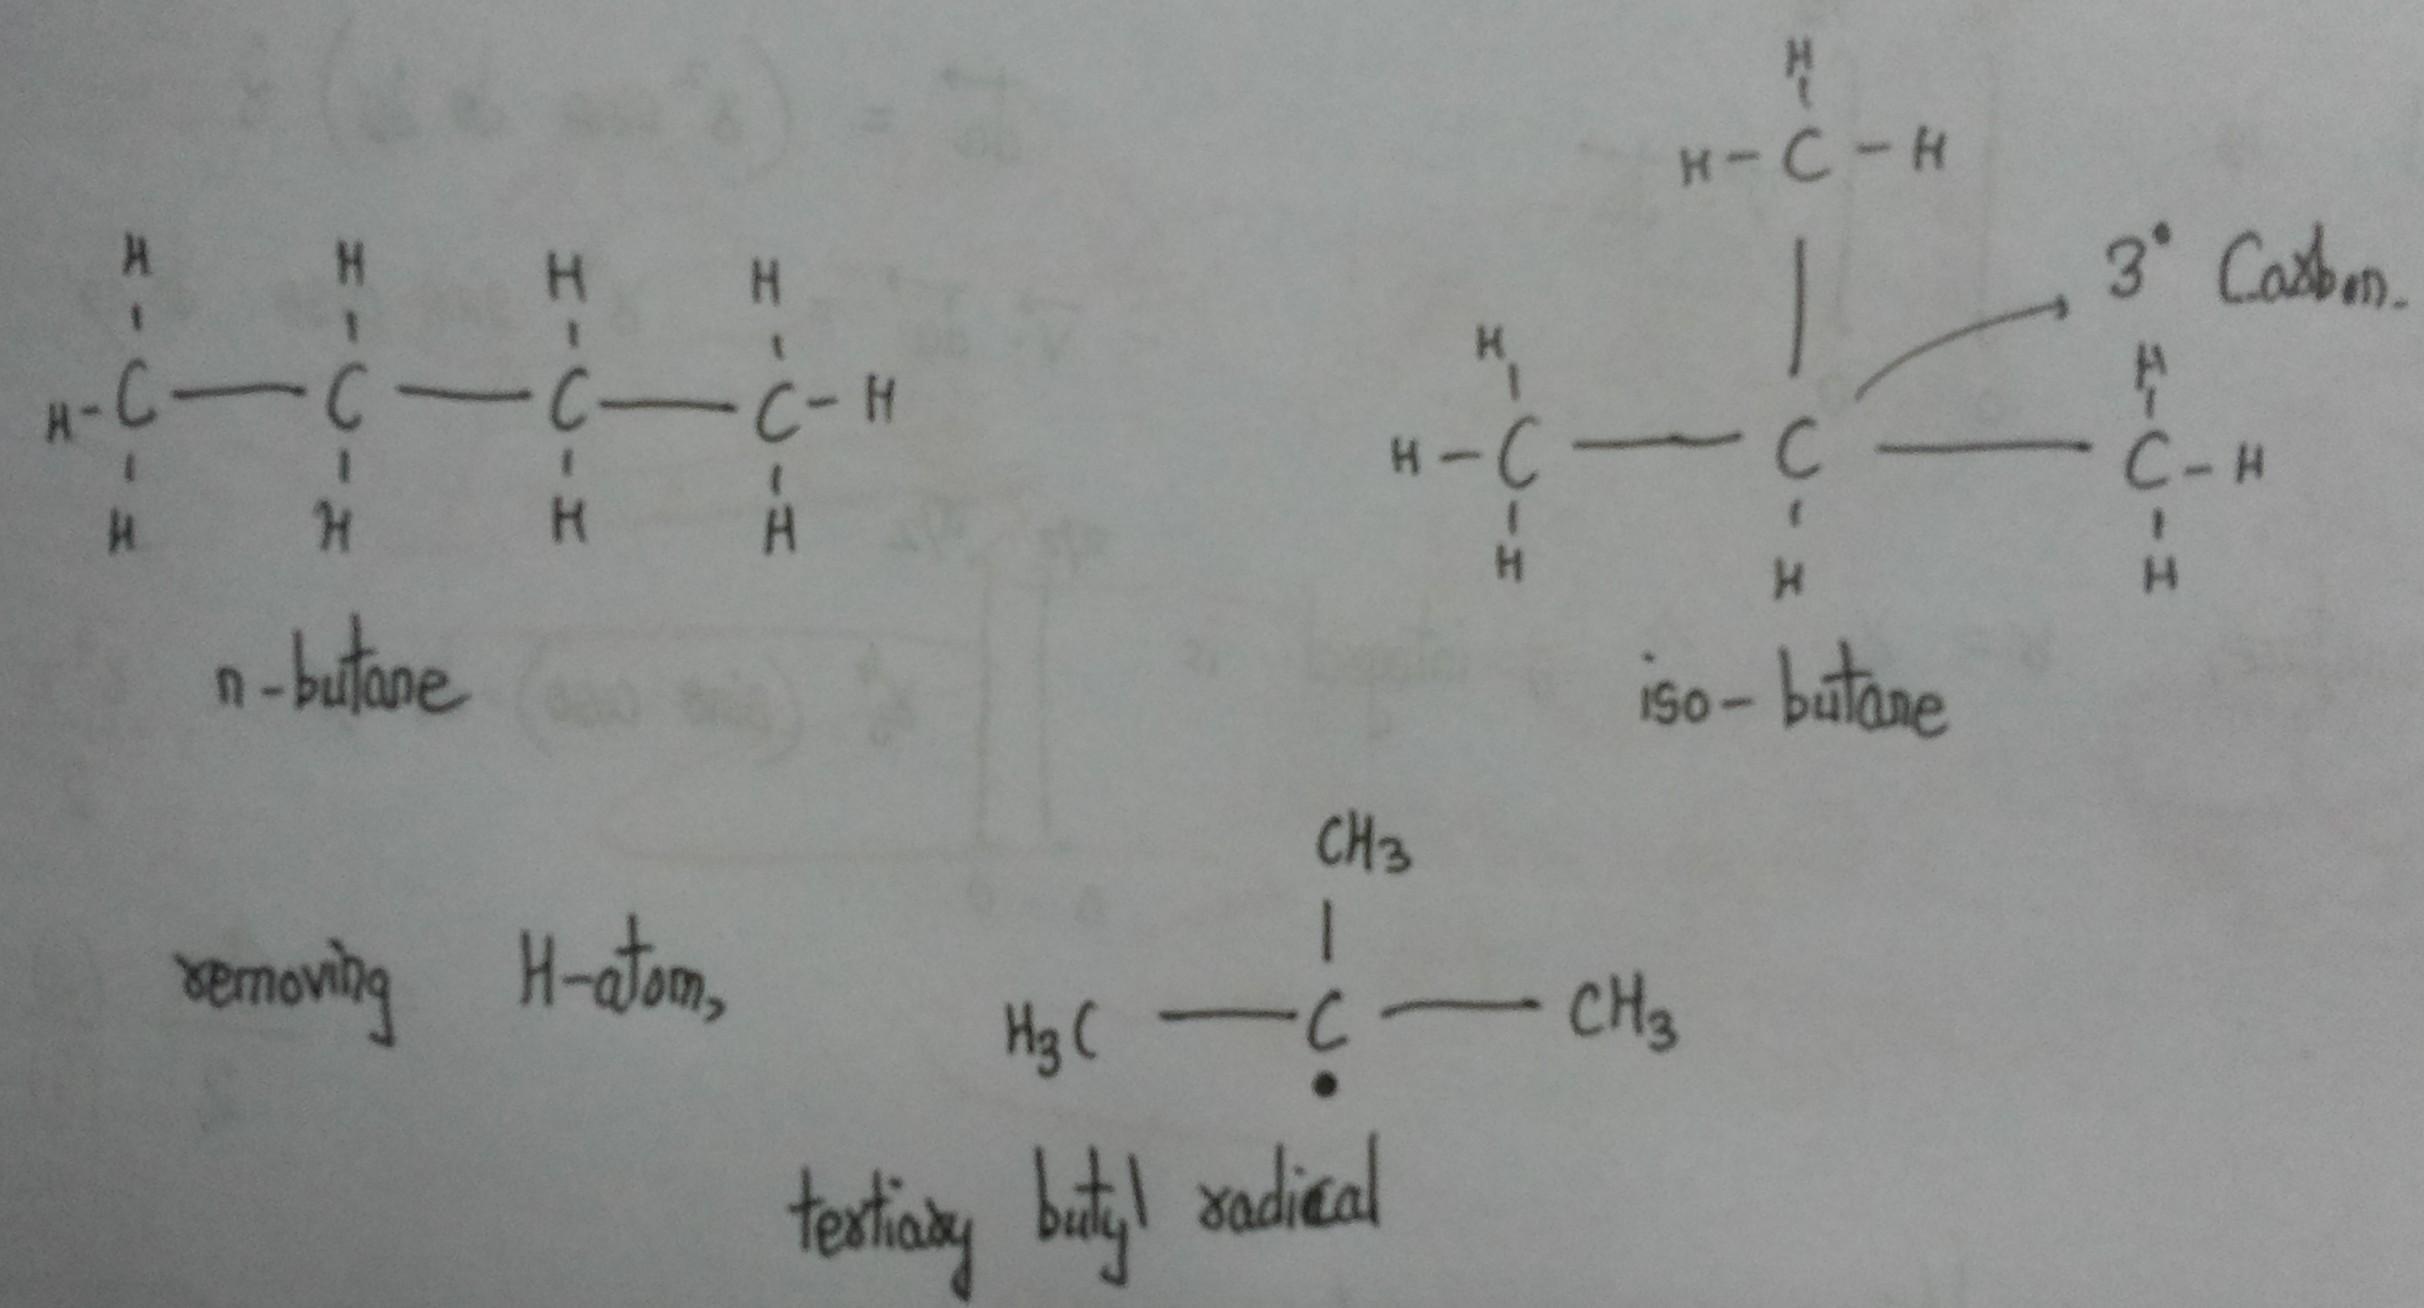 H H H H
H-C — C — C — C-H
H H H H
n-butane
H
H-C-H
3° Carbon.
H H
H-C — C — C-H
H H H
iso-butane
removing H-atom,
CH3
H3C — C — CH3
•
tertiary butyl radical